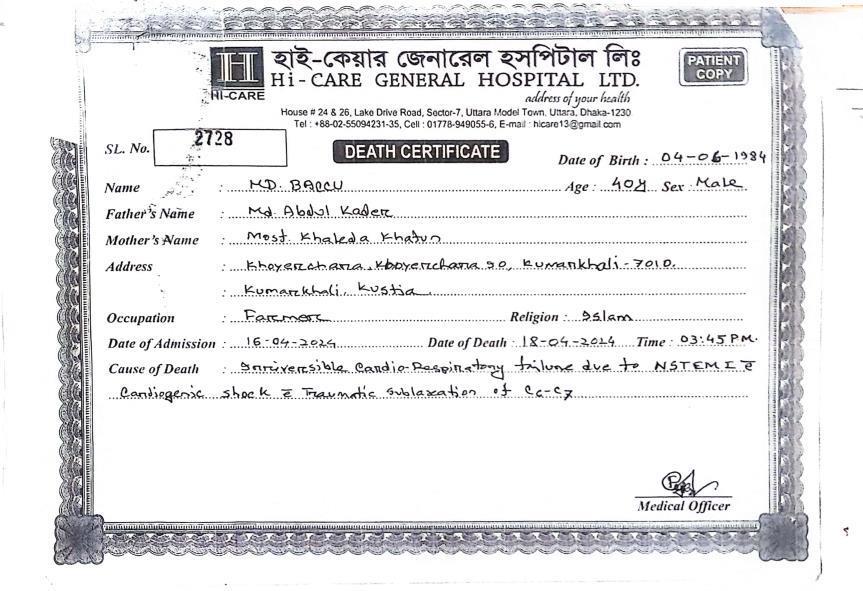 হাই-কেয়ার জেনারেল হসপিটাল লিঃ
Hi - CARE GENERAL HOSPITAL LTD.
HI-CARE
address of your health
PATIENT COPY
House # 24 & 26, Lake Drive Road, Sector-7, Uttara Model Town, Uttara, Dhaka-1230
Tel : +88-02-55094231-35, Cell : 01778-949055-6, E-mail : hicare13@gmail.com
SL. No. 2728
DEATH CERTIFICATE
Date of Birth : 04-06-1984
Name : MD. BACCU Age : 40y Sex : Male
Father's Name : Md. Abdul Kader
Mother's Name : Most. Khaleda Khatun
Address : Khoyerchara, Khoyerchara 50, Kumarkhali-7010.
Kumarkhali, Kustia
Occupation : Farmer Religion : Islam
Date of Admission : 16-04-2024 Date of Death : 18-04-2024 Time : 03:45 PM.
Cause of Death : Irriversible Cardio-Respiratory failure due to NSTEMI c̄
Cardiogenic shock c̄ Traumatic sublaxation of C6-C7
Medical Officer